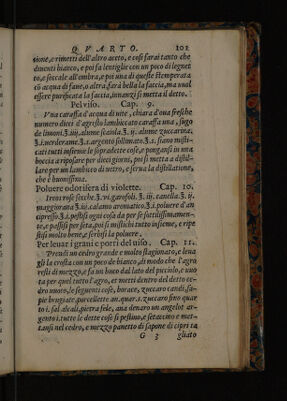 QVARTO. 101
sione, e rimetti dell'altro aceto, e così farai tanto che
diuenti bianco, e poi fa lentiglie con un poco di legnet
to, e seccale all'ombra, e poi una di queste stemperata
cō acqua di fano, altra, farà bella la faccia, ma uuol
esser purificata la faccia, innanzi si metta il detto.
Pel viso. Cap. 9.
Vna caraffa d'acqua di uite, chiara d'oua fresche
numero dieci d'agresto lambiccato caraffa una, sugo
de limoni. ℥. iiij. alume scaiola. ℥. ij. alume zuccarina,
℥. i. uerderame. ℥. i. argento sollimato. ℥. i. siano misti-
cati tutti insieme le sopradette cose, e pongansi in una
boccia a riposare per dieci giorni, poi si metta a distil-
lare per un lambicco di uetro, e serua la distillatione,
che è buonissima.
Poluere odorifera di violette. Cap. 10.
Ireos rose secche. ℥. vi. garofoli. ℥. iij. canella. ℥. ij.
maggiorata ℥. iij. calamo aromatico. ℥. i. poluere d'an
cipresso. ℥. i. pestisi ogni cosa da per se sottilissimamen-
te, e passisi per seta, poi si mistichi tutto insieme, e ripe
stisi molto bene, e serbisi la poluere.
Per leuar i grani e porri del uiso. Cap. 11.
Prendi un cedro grande e molto stagionato, e leua
gli la crosta con un poco de bianco, di modo che l'agro
resti di mezzo, e fa un buco dal lato del picciolo, e uuo
ta per quel tutto l'agro, et metti dentro del detto ce-
dro uuoto, le seguenti cose, borace, zuccaro candi, sa-
pie brugiate, porcellette an. quar. i. zuccaro fino quar
to i. sal alcali, pietra fele, ana denaro un
gento i. tutte le dette cose si pestino, e setaccino e met-
tansi nel cedro, e mezzo panetto di sapone di cipri ta
G 3 gliato